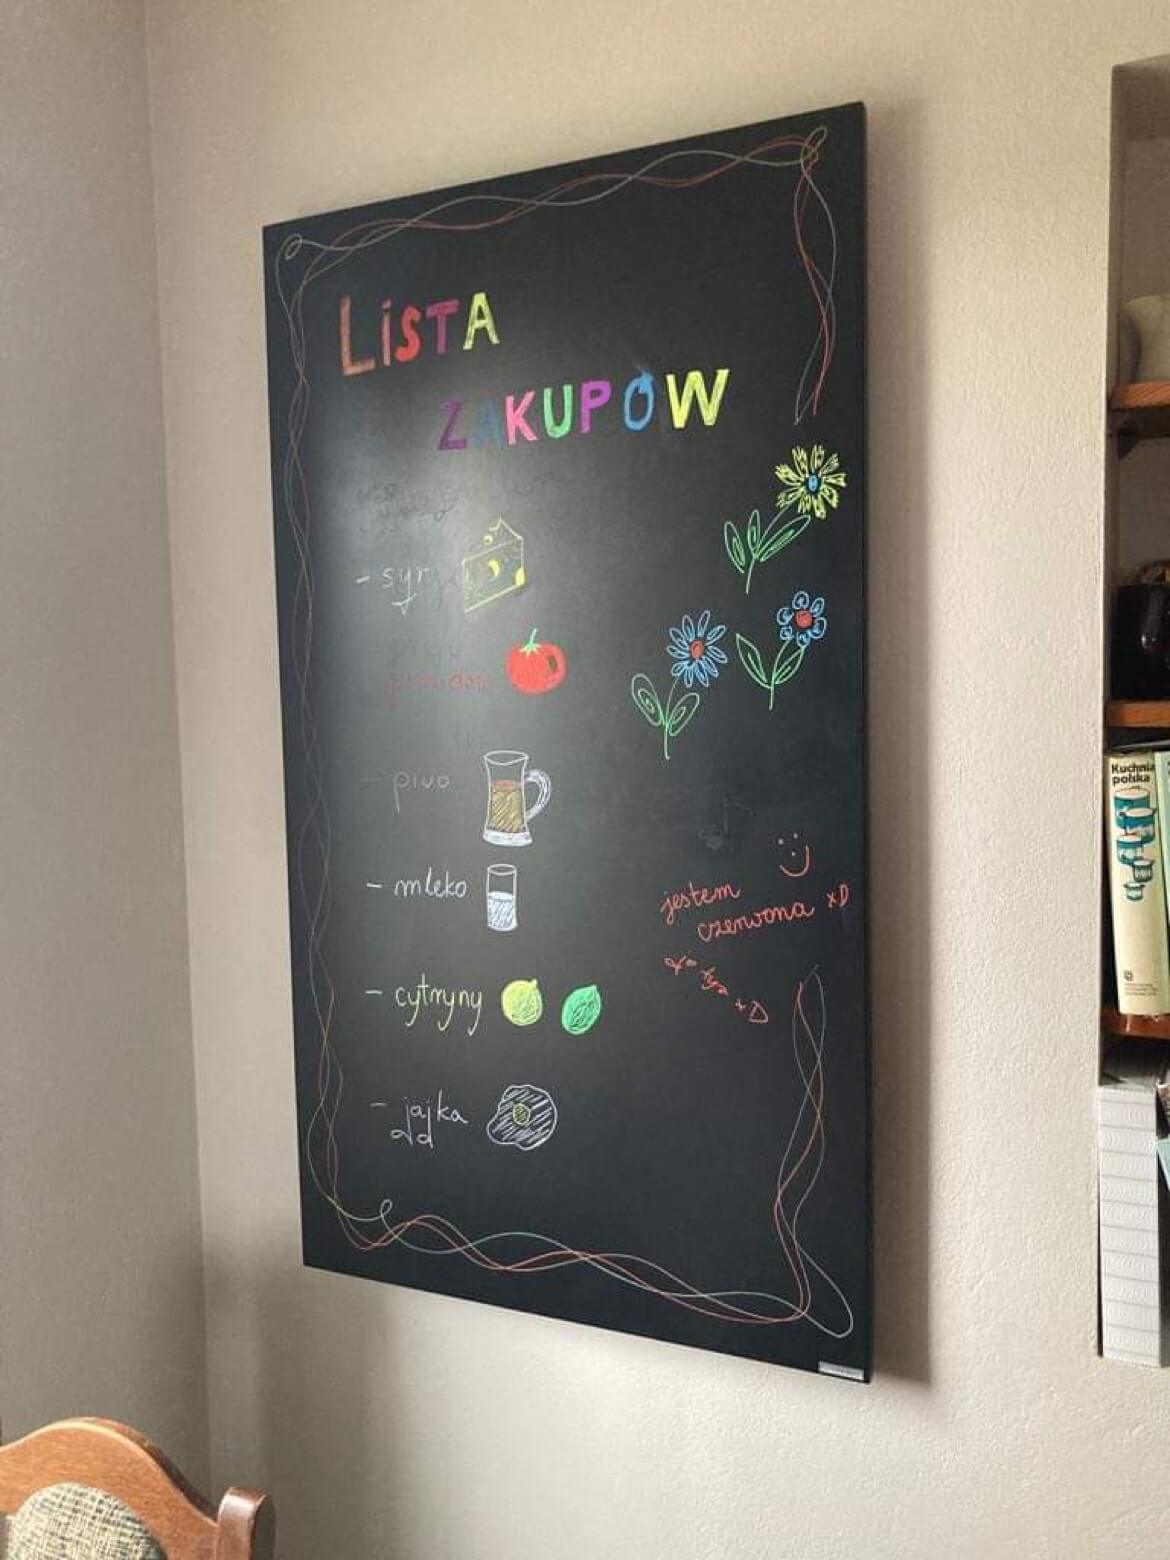 LiSTA
ZAKUPÓW
- syr
pomidor
- piwo
- mleko
- cytryny
- jajka
jestem
czerwona xD
xD
Kuchnia
polska